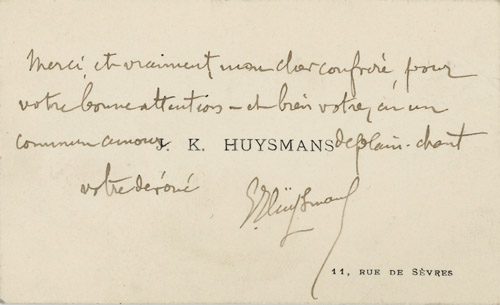 Merci, et vraiment, mon cher confrère, pour
votre bonne attention – et bien votre, en un
commun amour de plain-chant
J. K. HUYSMANS
votre dévoué
G. Huÿsmans
11, RUE DE SÈVRES